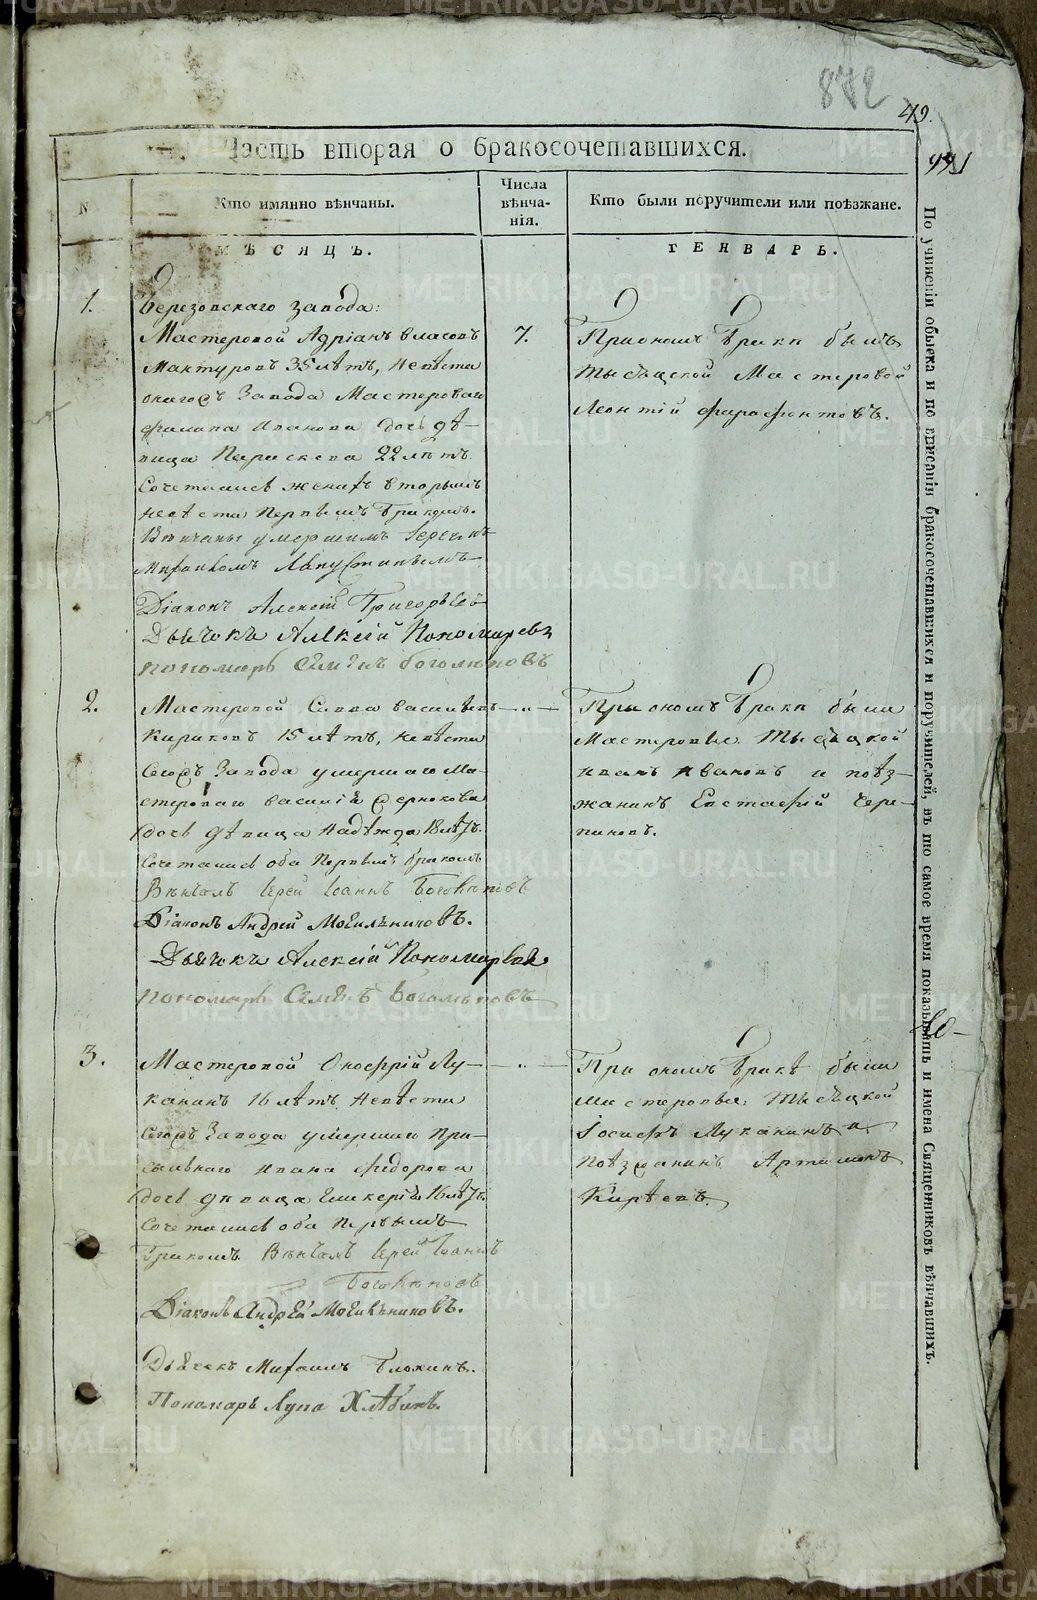 872
49.
441
Часть вторая о бракосочетавшихся.
N
Кто имянно вѣнчаны.
Числа
вѣнча-
нія.
Кто были поручители или поѣзжане.
МѢСЯЦЪ.
ГЕНВАРЬ.
1.
Березовскаго завода:
Мастеровой Адріанъ Власовъ
35 лѣтъ, невѣста
онагожъ завода Мастероваго
Иванова дочь дѣ-
вица Параскева 22 лѣтъ
Сочетались женихъ вторымъ
невѣста первымъ бракомъ.
Вѣнчаны умершимъ Іереемъ
Діаконъ Алексій Григорьевъ
Дьячокъ Алексій Пономаревъ
пономарь Семенъ Боголюповъ
7.
При ономъ бракѣ былъ
тысяцской Мастеровой
Леонтій Фарафонтовъ.
2.
Мастеровой Савва Васильевъ
Кириковъ 15 лѣтъ, невѣста
Сегожъ завода умершаго Ма-
стероваго Василія
дочь дѣвица Надѣжда 18 лѣтъ.
Сочетались оба первымъ бракомъ
Вѣнчалъ Іерей Іоаннъ
Діаконъ Андрей Могильниковъ.
Дьячокъ Алексій Пономаревъ
пономарь Семенъ Боголюповъ
— „ —
При ономъ бракѣ были
Мастеровые: тысяцкой
Иванъ Ивановъ и поѣз-
жанинъ Евстафій Чере-
пановъ.
3.
Мастеровой Онофрій Лу-
канинъ 16 лѣтъ невѣста
Сегожъ завода умершаго при-
сыльнаго Ивана Федорова
дочь дѣвица Гликерія 16 лѣтъ.
Сочетались оба первымъ
бракомъ. Вѣнчалъ Іерей Іоаннъ
Діаконъ Андрей Могильниковъ.
Дьячекъ Михаилъ Блохинъ.
Пономарь Лупа Хлѣбинъ.
— „ —
При ономъ бракѣ были
мастеровые: тысяцкой
Іосифъ Луканинъ и
поѣзжанинъ Артамонъ
Кирѣевъ.
По учиненіи обыска и по вписаніи бракосочетавшихся и поручителей, въ то самое время показывать и имена Священниковъ вѣнчавшихъ.
METRIKI.GASO-URAL.RU